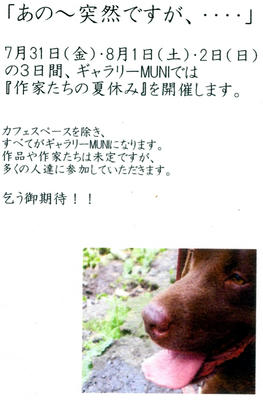 「あの～突然ですが、････」
7月31日(金)･8月1日(土)･2日(日)
の3日間、ギャラリーMUNIでは
『作家たちの夏休み』を開催します。
カフェスペースを除き、
すべてがギャラリーMUNIになります。
作品や作家たちは未定ですが、
多くの人達に参加していただきます。
乞う御期待！！